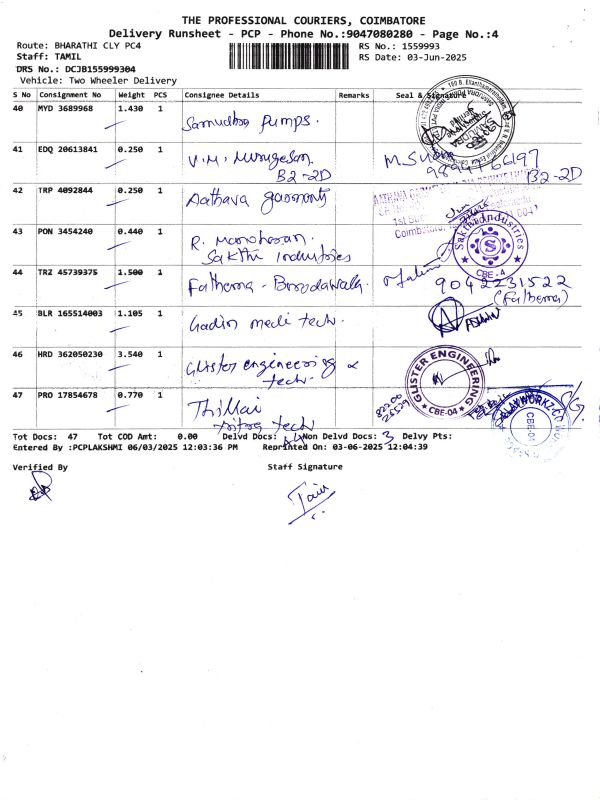 THE PROFESSIONAL COURIERS, COIMBATORE
Delivery Runsheet - PCP - Phone No.:9047080280 - Page No.:4
Route: BHARATHI CLY PC4 RS No.: 1559993
Staff: TAMIL RS Date: 03-Jun-2025
DRS No.: DCJB155999304
Vehicle: Two Wheeler Delivery
S No Consignment No Weight PCS Consignee Details Remarks Seal & Signature
40 MYD 3689968 1.430 1 Samudhra Pumps.
41 EDQ 20613841 0.250 1 V.M. Murugesan. B2-2D
98947 66197
B2-2D
42 TRP 4092844 0.250 1 Aathava garments
1st
Coimbatore
43 PON 3454240 0.440 1 R. Manoharan.
Sakthi Industries
Sakthi Industries
S
CBE - 4
44 TRZ 45739375 1.500 1 Fathema - Broodawala.
9042231522
(Fathema)
45 BLR 165514003 1.105 1 medi tech.
46 HRD 362050230 3.540 1 Glister engineering &
tech.
GLISTER ENGINEERING
CBE-04
47 PRO 17854678 0.770 1 Thillai
tech
CBE-04
Tot Docs: 47 Tot COD Amt: 0.00 Delvd Docs: 44 Non Delvd Docs: 3 Delvy Pts:
Entered By :PCPLAKSHMI 06/03/2025 12:03:36 PM Reprinted On: 03-06-2025 12:04:39
Verified By Staff Signature